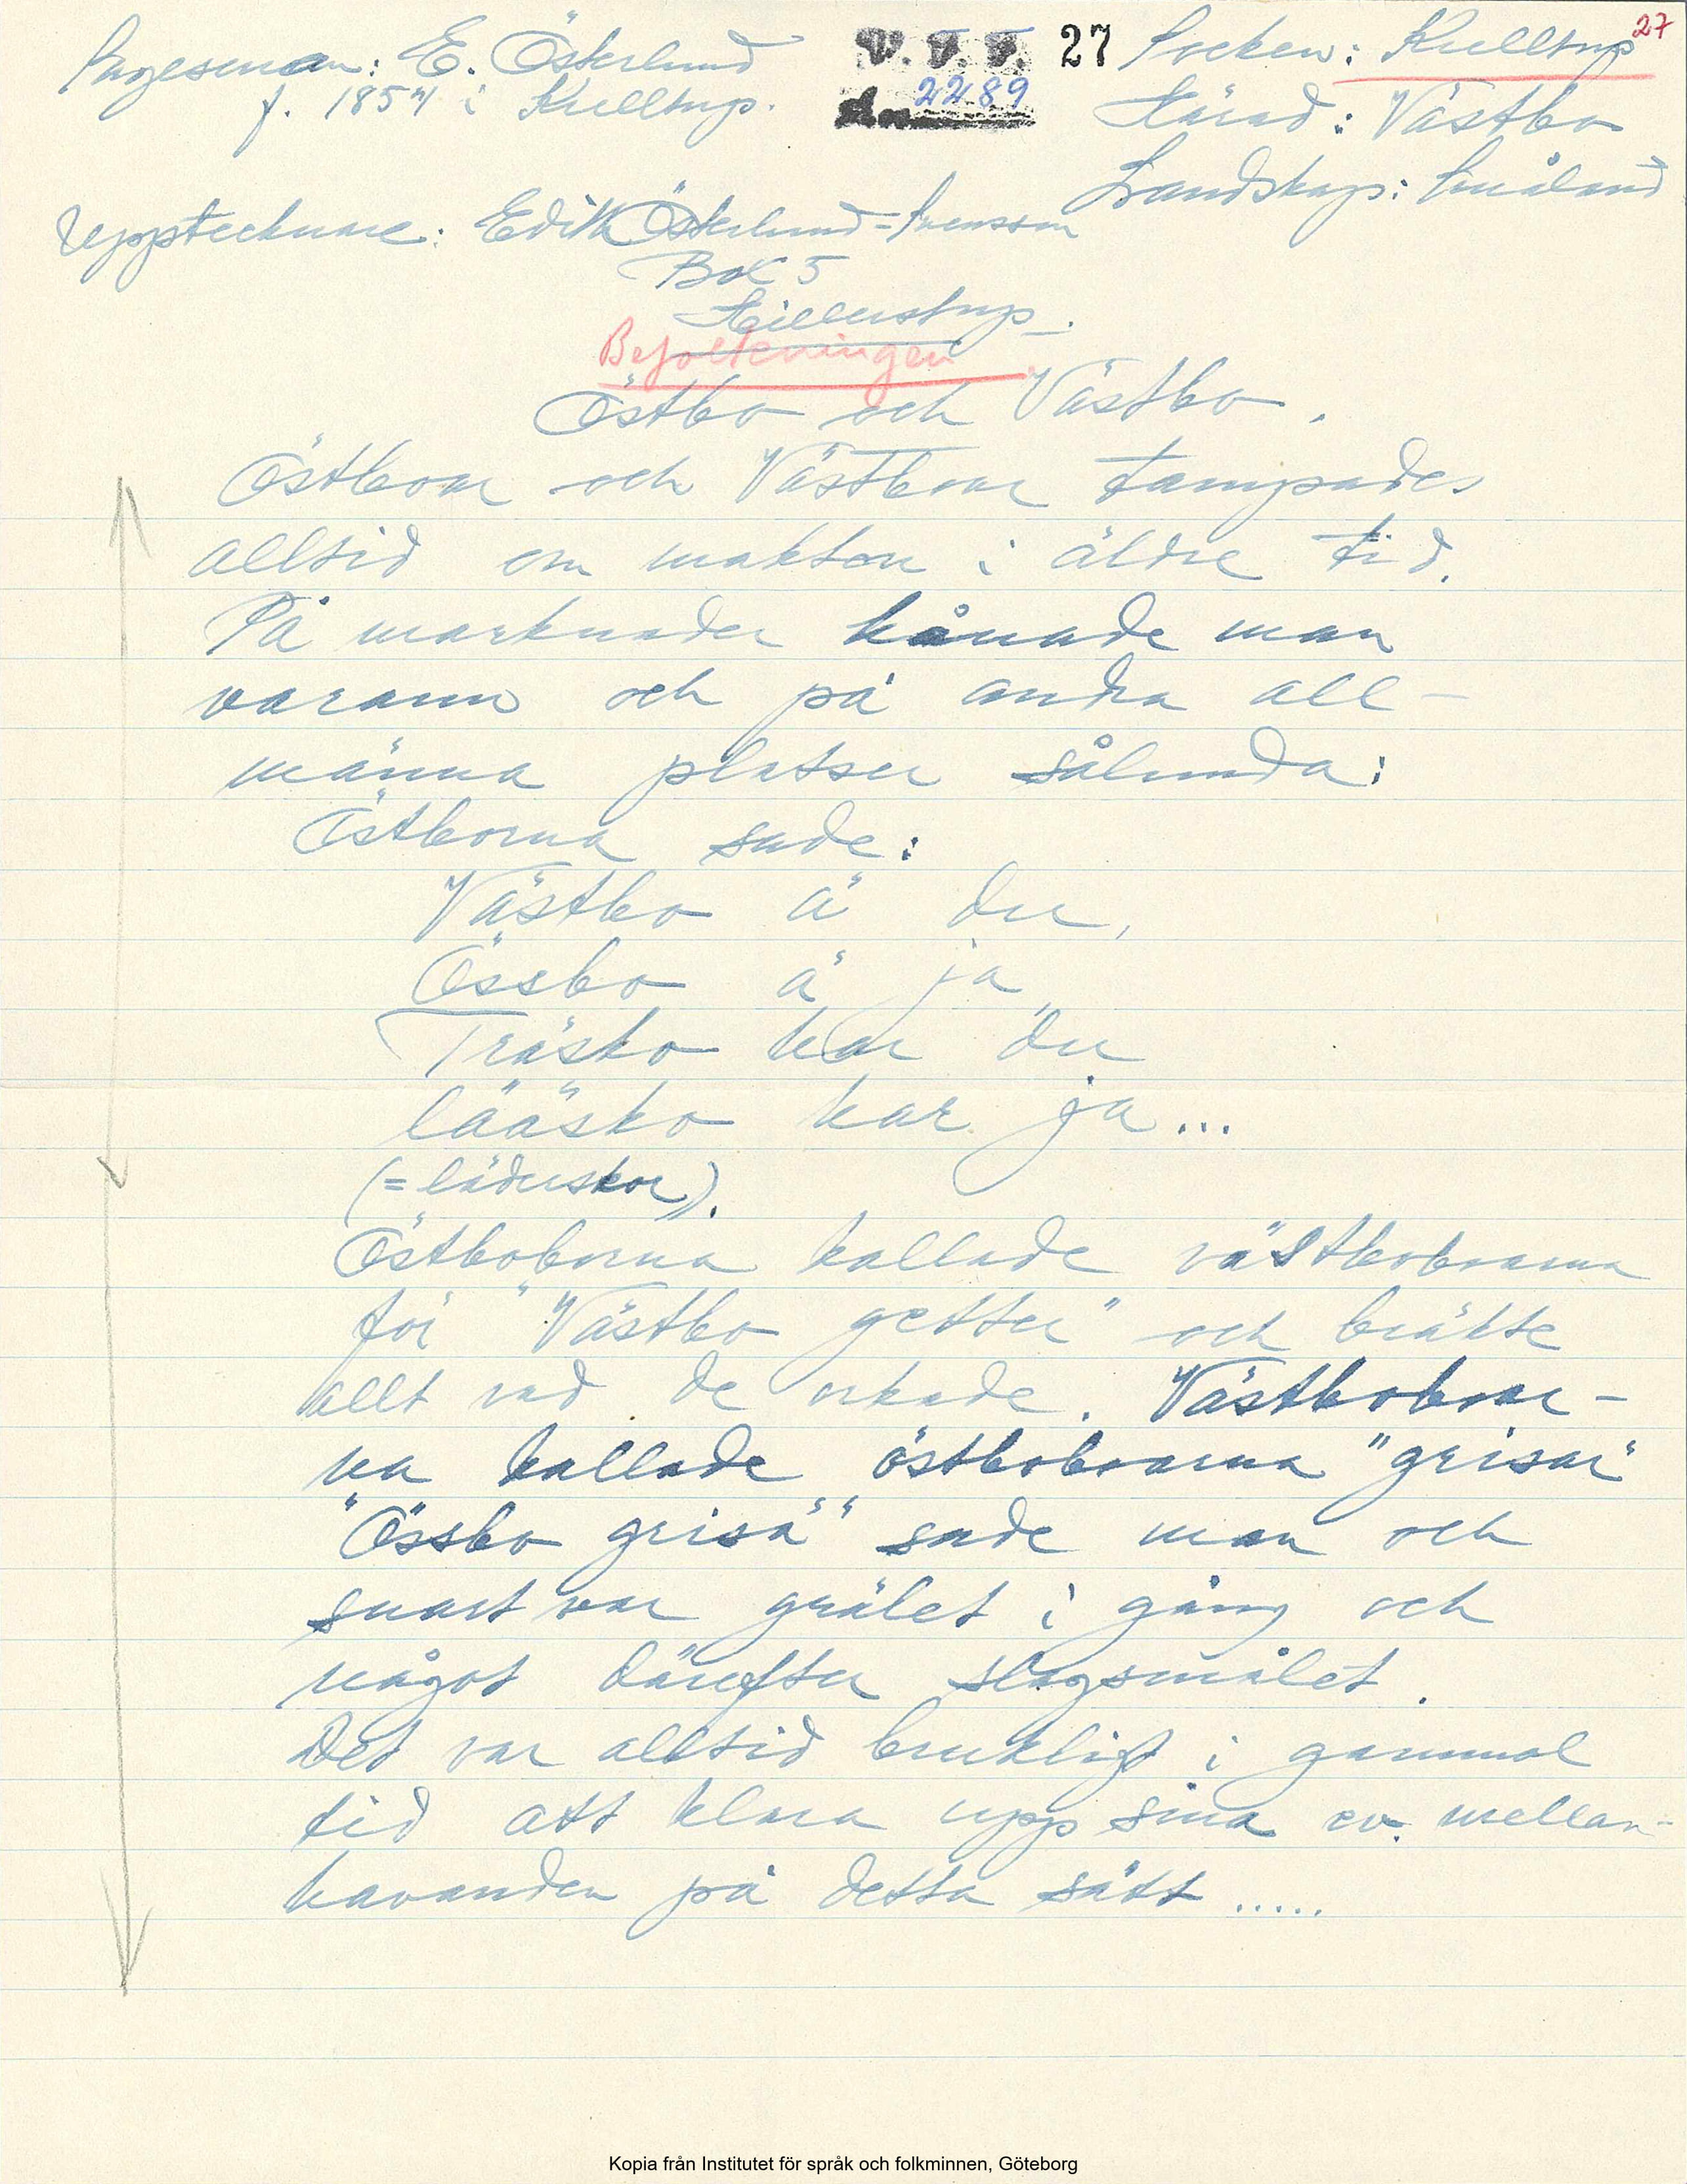 Sagesman: E. Österlund
f. 1854 i Kulltorp.
V. F. F. 27
2289
27
Socken: Kulltorp
Härad: Västbo
Landskap: Småland
Upptecknare: Edith Österlund-Svensson
Box 5
Hillerstorp.
Befolkningen
Östbo och Västbo.
Östboar och Västboar tampades
alltid om makten i äldre tid.
På marknader hånade man
varann och på andra all-
männa platser sålunda:
Östborna sade:
Västbo ä du,
Össbo ä ja
Träsko har du
lääsko har ja...
(= läderskor).
Östboborna kallade västboboarna
för "Västbo getter" och bräkte
allt vad de orkade. Västboboar-
na kallade östboboarna "grisar"
"Össbo grisä" sade man och
snart var grälet i gång och
något därefter slagsmålet.
Det var alltid brukligt i gammal
tid att klara upp sina ev. mellan-
havanden på detta sätt .....
Kopia från Institutet för språk och folkminnen, Göteborg